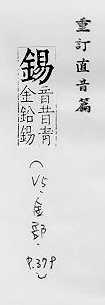 重訂直音篇
錫
音昔青
金鉛錫
(V5.金部.
P.379)